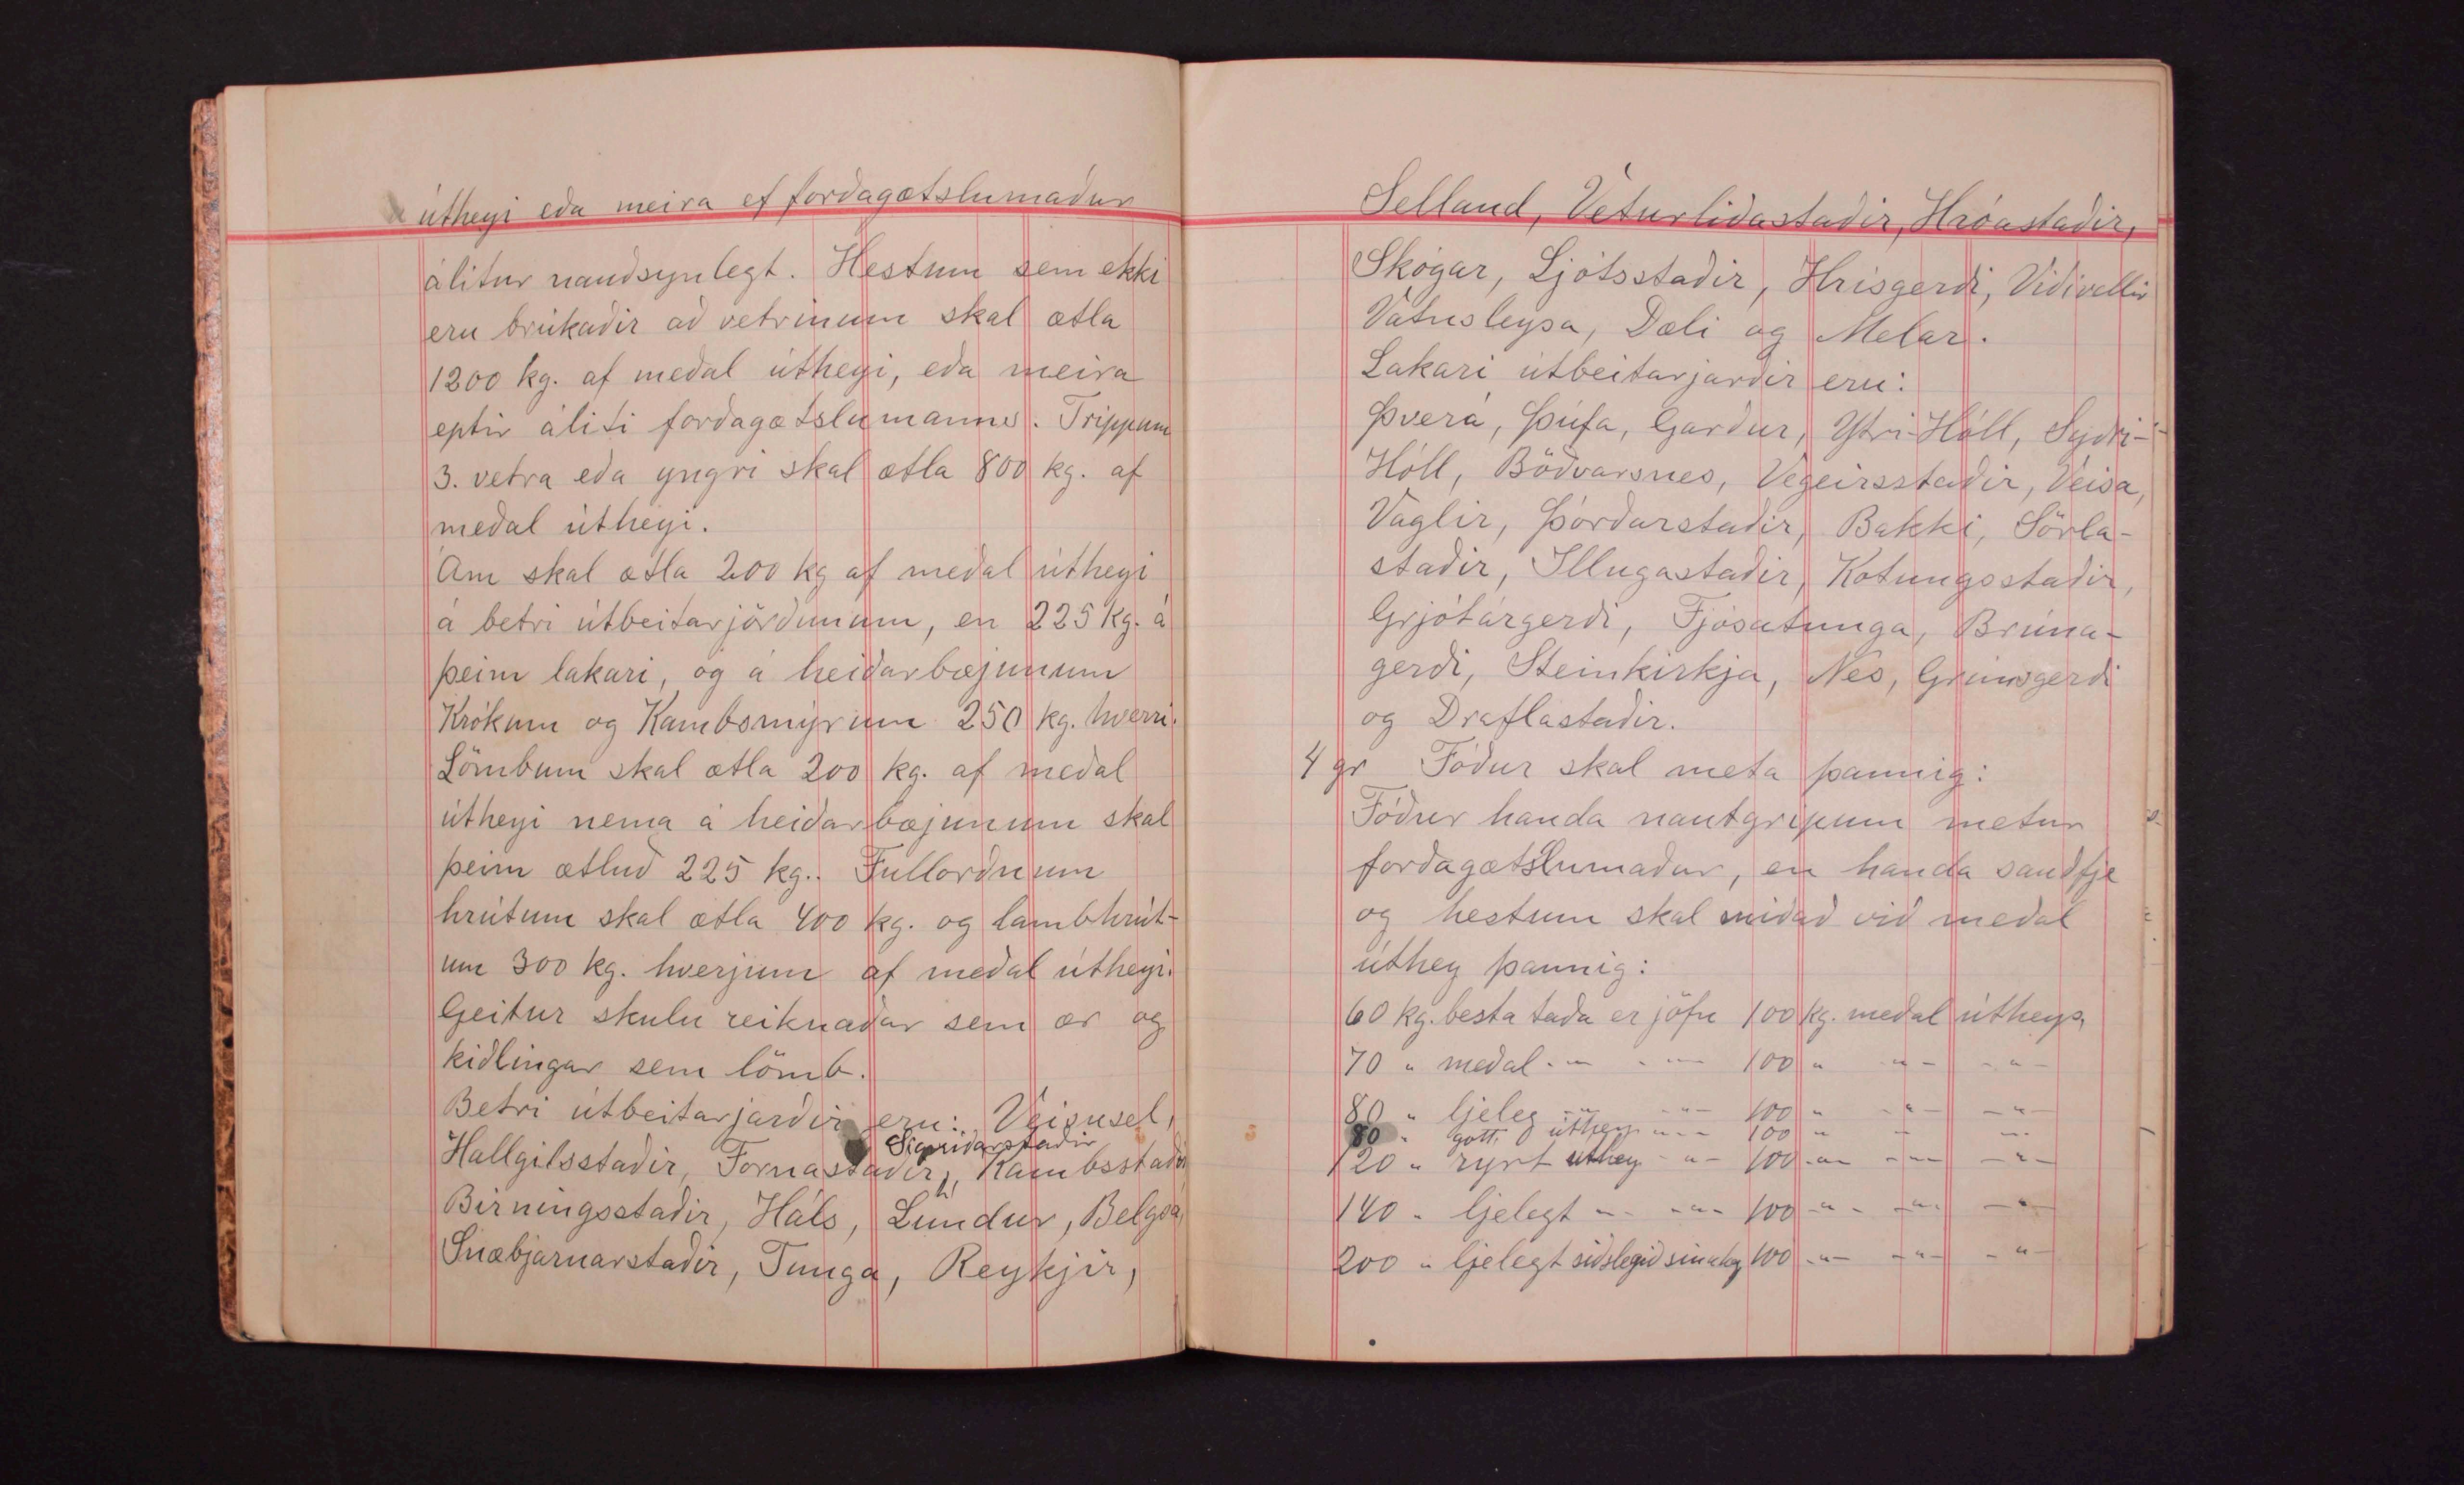 útheyi eða meira ef forðagætslumaður
álítur nauðsynlegt. Hestum sem ekki
eru brúkaðir að vetrinum skal ætla
1200 kg. af meðal útheyi, eða meira
eptir áliti forðagætslumanns. Trippum
3. vetra eða yngri skal ætla 800 kg. af
meðal útheyi.
Ám skal ætla 200 kg af meðal útheyi
á betri útbeitarjörðunum, en 225 kg. á
þeim lakari, og á heiðarbæjunum
Krókum og Kambsmýrum 250 kg. hverri.
Lömbum skal ætla 200 kg. af meðal
útheyi nema á heiðarbæjunum skal
þeim ætluð 225 kg.. Fullorðnum
hrútum skal ætla 400 kg. og lambhrút-
um 300 kg. hverjum af meðal útheyi.
Geitur skulu reiknaðar sem ær og
kiðlingar sem lömb.
Betri útbeitarjarðir eru: Veisusel,
Sigríðarstaðir
Hallgilsstaðir, Fornastaðir, Kambsstaðir
Birningsstaðir, Háls, Lundur, Belgsá,
Snæbjarnarstaðir, Tunga, Reykjir,
Selland, Veturliðastaðir, Hróastaðir,
Skógar, Ljótsstaðir, Hrísgerði, Víðivellir
Vatnsleysa, Dæli og Melar.
Lakari útbeitarjarðir eru:
Þverá, Þúfa, Garður, Ytri-Hóll, Syðri-
Hóll, Böðvarsnes, Végeirsstaðir, Veisa,
Vaglir, Þórðarstaðir, Bakki, Sörla-
staðir, Illugastaðir, Kotungsstaðir,
Grjótárgerði, Fjósatunga, Brúna-
gerði, Steinkirkja, Nes, Grímsgerði
og Draflastaðir.
4 gr Fóður skal meta þannig:
Fóður handa nautgripum metur
forðagætslumaður, en handa sauðfje
og hestum skal miðað við meðal
úthey þannig:
60 kg. besta taða er jöfn 100 kg. meðal útheys
70 " meðal - " - - " - 100 " - " - - " -
80 " ljeleg - " - - " - 100 " - " - - " -
80 " gott úthey - " - 100 " - " - - " -
120 " rýrt úthey - " - 100 - " - - " - - " -
140 " ljelegt - " - - " - 100 - " - - " - - " -
200 " ljelegt síðslegið sinuhey 100 - " - - " - - " -